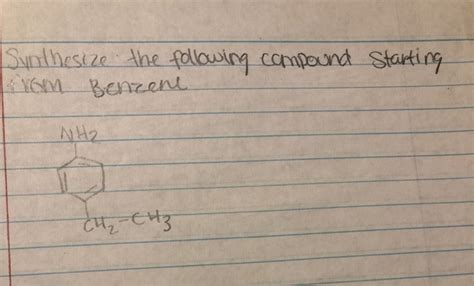 Synthesize the following compound starting
from Benzene
NH2
CH2-CH3